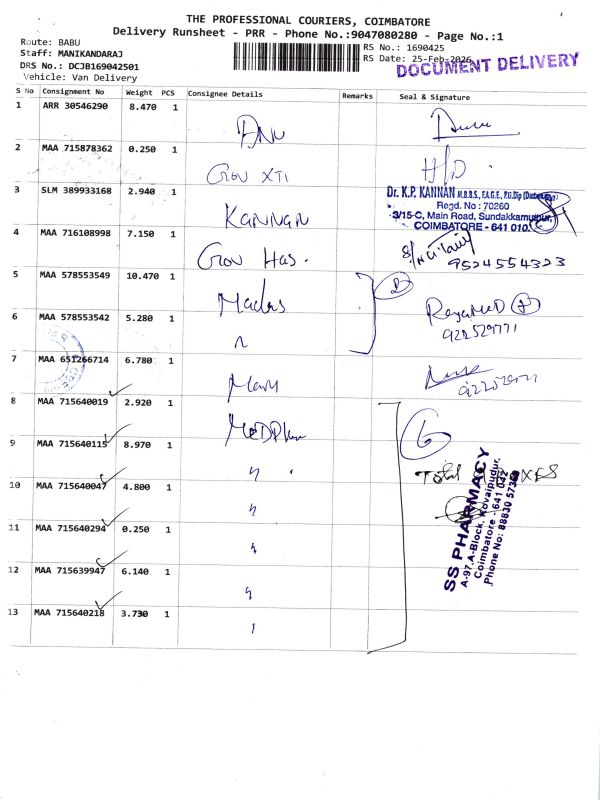 THE PROFESSIONAL COURIERS, COIMBATORE
Delivery Runsheet - PRR - Phone No.:9047080280 - Page No.:1
Route: BABU
Staff: MANIKANDARAJ
DRS No.: DCJB169042501
Vehicle: Van Delivery
RS No.: 1690425
RS Date: 25-Feb-2026
DOCUMENT DELIVERY
S No Consignment No Weight PCS Consignee Details Remarks Seal & Signature
1 ARR 30546290 8.470 1
2 MAA 715878362 0.250 1
H/D
3 SLM 389933168 2.940 1 KANNAN
Dr. K.P. KANNAN M.B.B.S., F.A.G.E., P.G.Dip (Diabetology)
Regd. No : 70260
3/15-C, Main Road, Sundakkamuthur,
COIMBATORE - 641 010.
4 MAA 716108998 7.150 1 Gov Has.
9524554323
5 MAA 578553549 10.470 1
2
6 MAA 578553542 5.280 1
7 MAA 651266714 6.780 1
8 MAA 715640019 2.920 1
6
9 MAA 715640115 8.970 1 "
Total
10 MAA 715640047 4.800 1 "
11 MAA 715640294 0.250 1 "
12 MAA 715639947 6.140 1 "
13 MAA 715640218 3.730 1
SS PHARMACY
A-97, A-Block, Kovaipudur,
Coimbatore - 641 042
Phone No: 88830 5736